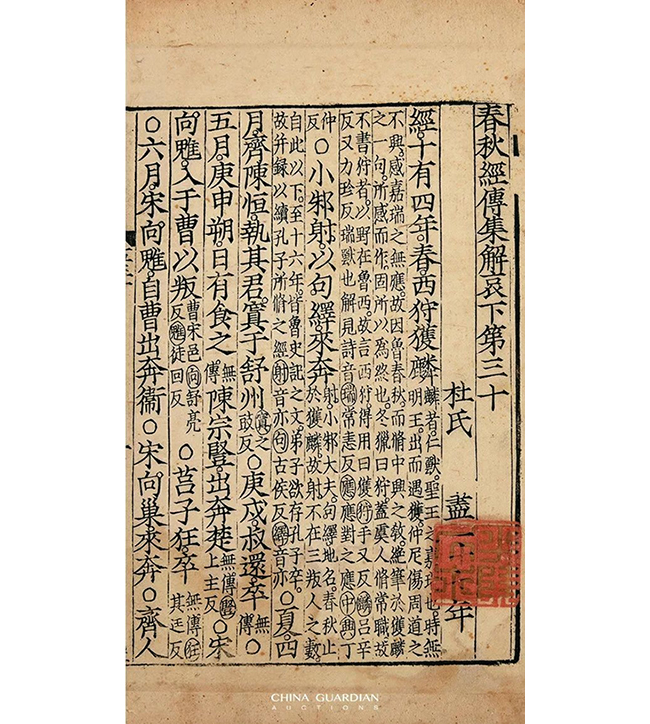 春秋經傳集解哀下第三十
杜氏 盡二十 年
經十有四年春西狩獲麟麟者仁獸聖王之嘉瑞也時無
明王出而遇獲仲尼傷周道之
不興感嘉瑞之無應故因魯春秋而脩中興之敎絕筆於獲麟
之一句所感而作固所以爲終也冬獵曰狩蓋虞人脩常職故
不書狩者以野在魯西故言西狩得用曰獲狩手又反麟呂辛
反又力珍反瑞獸也解見詩音瑞常恚反應應對之應中興丁
仲
反
○小邾射以句繹來奔射小邾大夫句繹地名春秋止
於獲麟故射不在三叛人之數
自此以下至十六年皆魯史記之文弟子欲存孔子卒
故并録以續孔子所脩之經射音亦句古侯反繹音亦
○夏四
月齊陳恒執其君寘于舒州寘之
豉反
○庚戌叔還卒無
傳
○
五月庚申朔日有食之無
傳
陳宗豎出奔楚無傳豎
上主反
○宋
向魋入于曹以叛曹宋邑向舒亮
反魋徒回反
○莒子狂卒無傳狂
其廷反
○六月宋向魋自曹出奔衞○宋向巢來奔○齊人
CHINA GUARDIAN
AUCTIONS